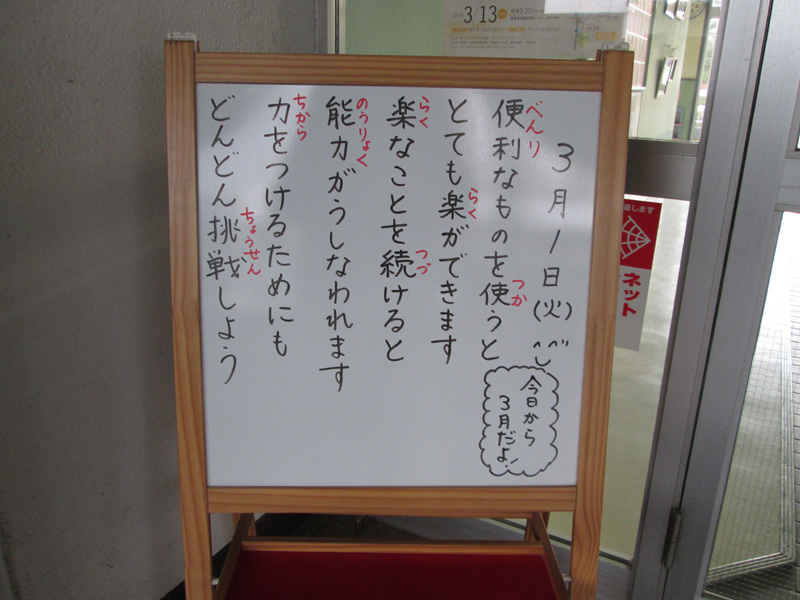 3月1日(火)
便利なものを使うと
べんり
つか
とても楽ができます
らく
楽なことを続けると
らく
つづ
能力がうしなわれます
のうりょく
力をつけるためにも
ちから
どんどん挑戦しよう
ちょうせん
今日から
3月だよ!
3/13
ネット